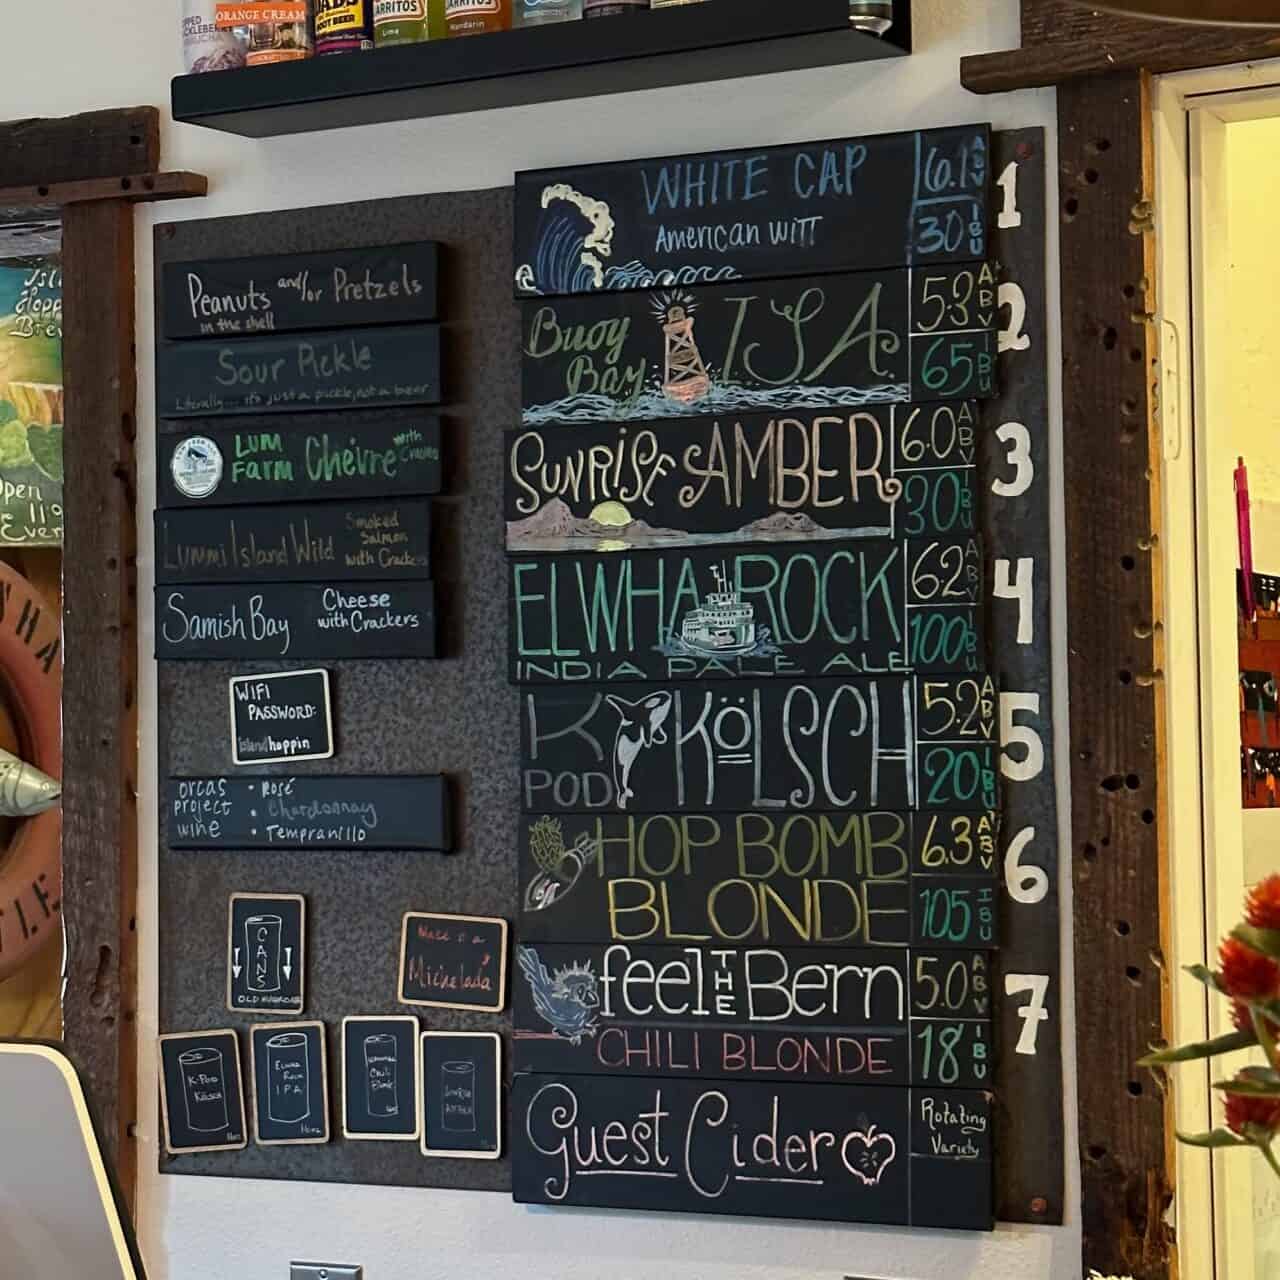 ORANGE CREAM
ROOT BEER
JARRITOS
Lime
JARRITOS
Mandarin
Peanuts and/or Pretzels
in the shell
Sour Pickle
Literally... it's just a pickle, not a beer
LUM FARM Chèvre with Crackers
Lummi Island Wild Smoked Salmon with Crackers
Samish Bay Cheese with Crackers
WIFI
PASSWORD:
islandhoppin
orcas project wine
• Rosé
• Chardonnay
• Tempranillo
CANS
Make it a
Michelada
K-Pod
Kölsch
Elwha
Rock
IPA
Chili
Blonde
Sunrise
Amber
WHITE CAP
American WiTT
6.1 ABV
30 IBU
1
Buoy Bay ISA
5.3 ABV
65 IBU
2
SUNRiSE AMBER
6.0 ABV
30 IBU
3
ELWHA ROCK
INDIA PALE ALE
6.2 ABV
100 IBU
4
K POD KöLSCH
5.2 ABV
20 IBU
5
HOP BOMB
BLONDE
6.3 ABV
105 IBU
6
feel THE Bern
CHILI BLONDE
5.0 ABV
18 IBU
7
Guest Cider
Rotating
Variety